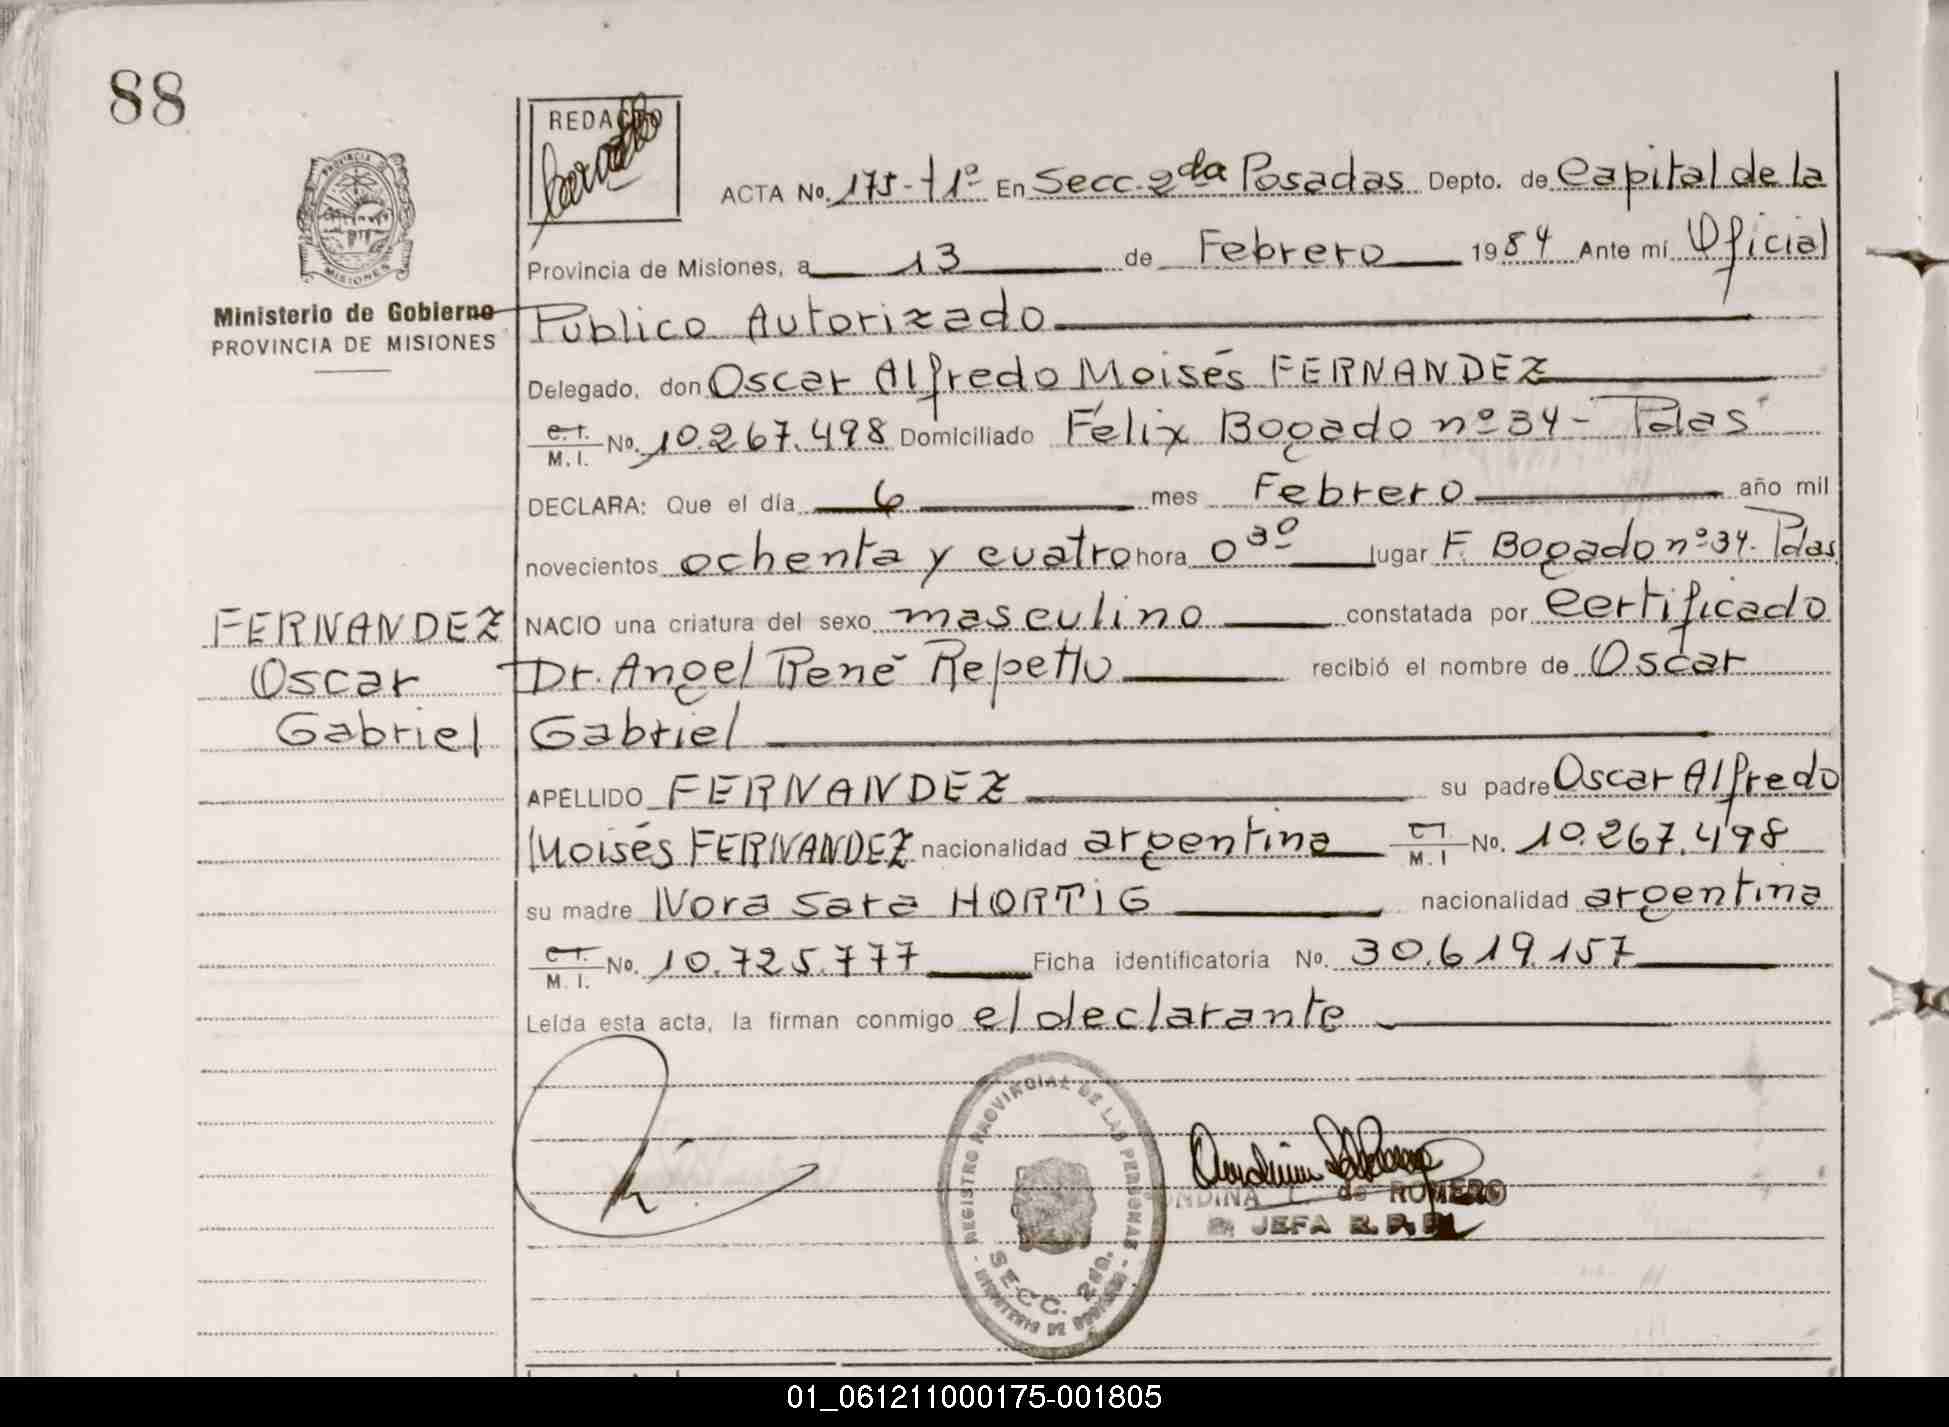 88
REDACTO
PROVINCIA DE
MISIONES
Ministerio de Gobierno
PROVINCIA DE MISIONES
ACTA No. 175-t1º En Secc. 2da Posadas Depto. de Capital de la
Provincia de Misiones, a 13 de Febrero 1984 Ante mí Oficial
Público Autorizado
Delegado, don Oscar Alfredo Moisés FERNANDEZ
C.I. M.I. No. 10.267.498 Domiciliado Félix Bogado nº 34 - Pdas
DECLARA: Que el día 6 mes Febrero año mil
novecientos ochenta y cuatro hora 0 30 lugar F. Bogado nº 34. Pdas
FERNANDEZ NACIO una criatura del sexo masculino constatada por certificado
Oscar Dr. Angel René Repetto recibió el nombre de Oscar
Gabriel Gabriel
APELLIDO FERNANDEZ su padre Oscar Alfredo
Moisés FERNANDEZ nacionalidad argentina C.I. M.I No. 10.267.498
su madre Nora Sara HORTIG nacionalidad argentina
C.I. M.I. No. 10.725.777 Ficha identificatoria No. 30.619.157
Leída esta acta, la firman conmigo el declarante
REGISTRO PROVINCIAL DE LAS PERSONAS
SECC. 2da.
MINISTERIO DE GOBIERNO
ONDINA de ROMERO
JEFA R. P.
01_061211000175-001805